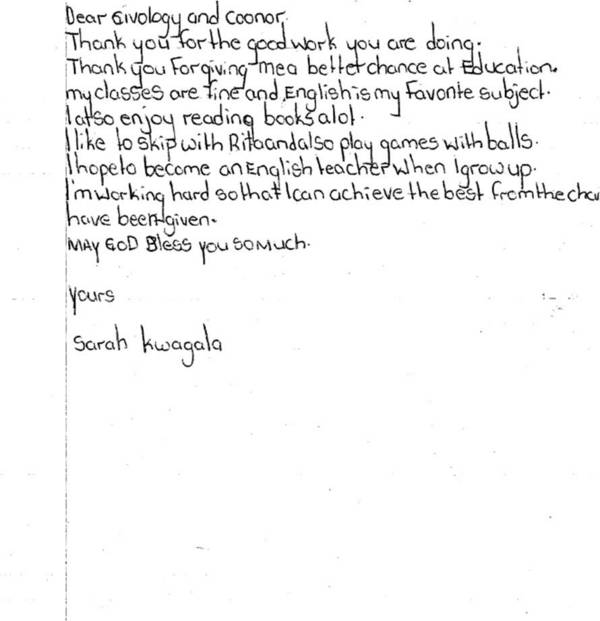 Dear Givology and Coonor.
Thank you for the good work you are doing.
Thank you For giving me a better chance at Education.
my classes are fine and English is my Favorite subject.
I also enjoy reading books alot.
I like to skip with Rita and also play games with balls.
I hope to become an English teacher when I grow up.
I'm working hard so that I can achieve the best from the cha
have been given.
MAY GOD Bless you so much.
yours
Sarah Kwagala